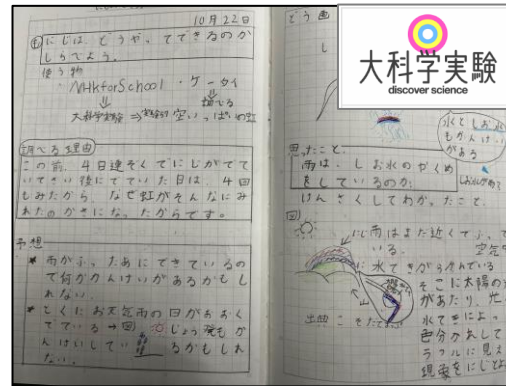 10月22日
にじは、どうやってできるのか
しらべよう。
使う物
・NHKforSchool ・ケータイ
大科学実験 ⇒ 空いっぱいの虹
調べる理由
この前、4日連ぞくでにじがでて
いてさい後にでていた日は、4回
もみたから、なぜ虹がそんなにみ
れたのかきになったからです。
予想
雨がふったあにできているの
で何かかんけいがあるかもし
れない。
とくにお天気雨の日がおおく
でている→図
んけいしている かもしれ
ない。
大科学実験
discover science
水てき
もかんけい
がある
思ったこと
雨は、しお水のやくめ
をしているのか。
けんさくしてわかったこと。
図
雨はまだ近くでふって
いる。
空気
に水てきがうかんでいる
そこに太陽の
があたり、
水てきによっ
色分かれして
ラフルに見え
現象をにじとよ